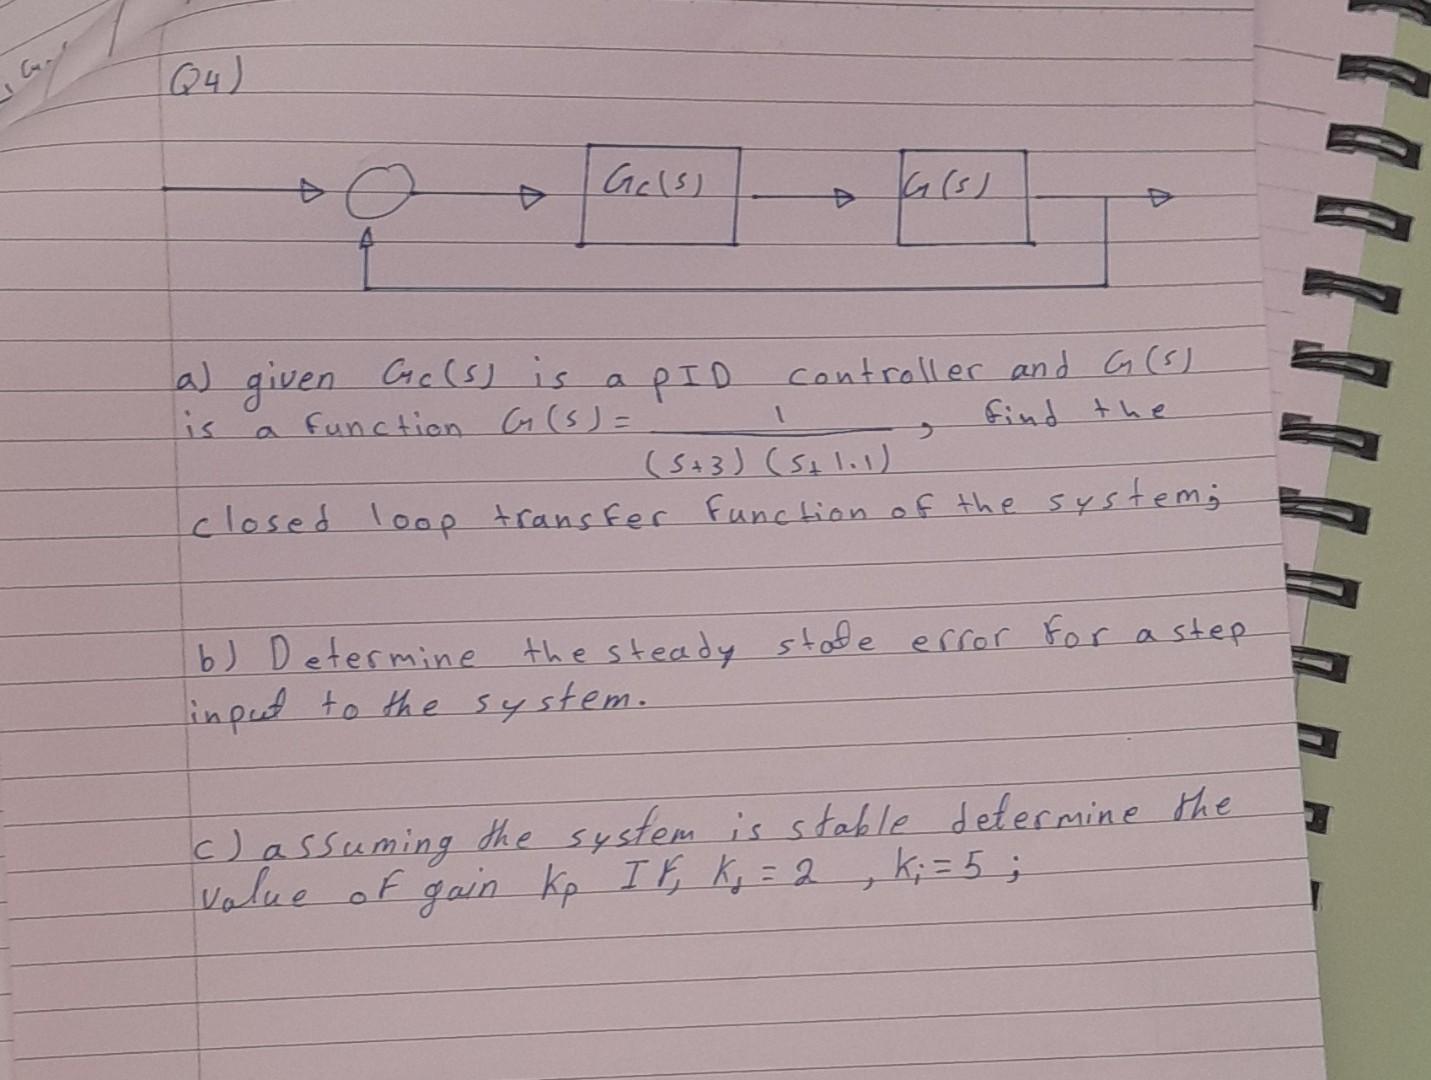 Q4)
Gc(s) G(s)
a) given Gc(s) is a pID controller and G(s)
is a function G(s) = 1 / (s+3) (s+1.1) , find the
closed loop transfer function of the system;
b) Determine the steady state error for a step
input to the system.
c) assuming the system is stable determine the
value of gain Kp If, Kd = 2 , Ki = 5 ;